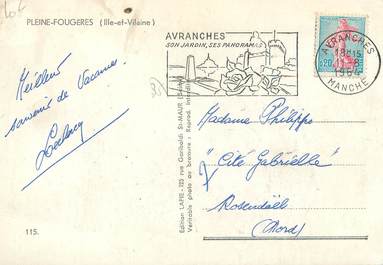 Lot
PLEINE-FOUGERES (Ille-et-Vilaine)
AVRANCHES
SON JARDIN, SES PANORAMAS
AVRANCHES
18H15
11-8
1964
MANCHE
0,20
Meilleur
souvenir de Vacances
Leclercq
Madame Philippe
"Cité Gabrielle"
Rosendaël
(Nord)
Edition LAPIE - 123 rue Garibaldi St-MAUR (Seine)
Véritable photo au bromure : Reprod. interdite
115.